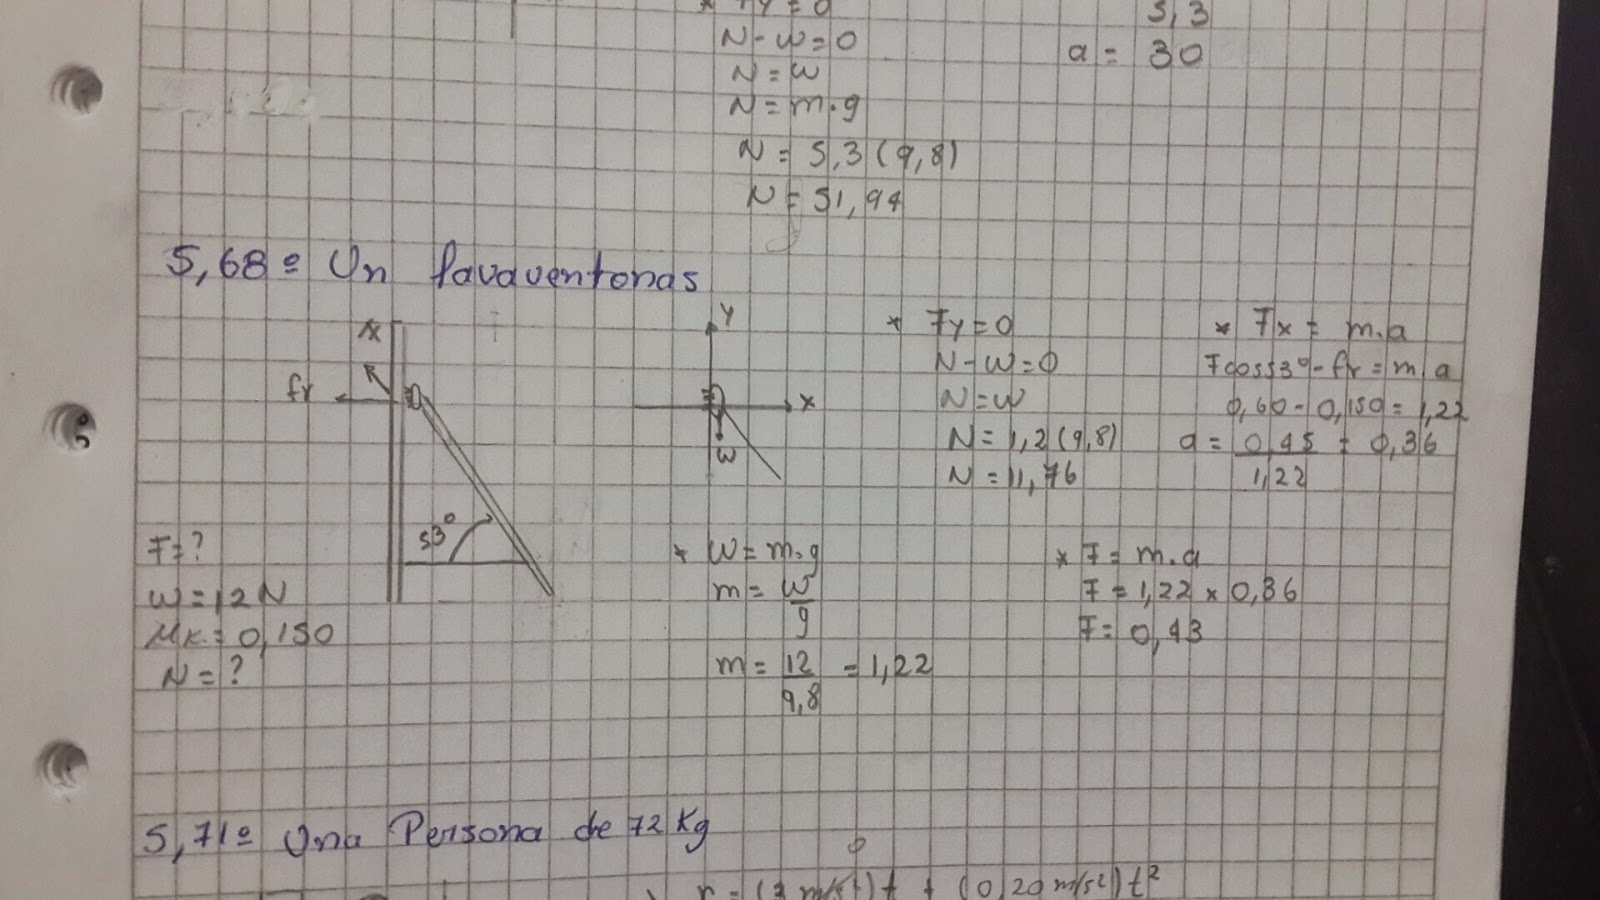 N-w=0
N=w
N=m.g
N=5,3(9,8)
N=51,94
5,3
a= 30
5,68º Un lavaventanas
fr
53º
F=?
w=12N
Mk=0,150
N=?
Y
X
w
* Fy=0
N-w=0
N=w
N=1,2(9,8)
N=11,76
* Fx = m.a
Fcos53º-fr=m.a
0,60-0,150=1,22
a= 0,45 = 0,36
1,22
* w=m.g
m= w
g
m= 12 =1,22
9,8
* F= m.a
F=1,22 x 0,36
F= 0,43
5,71º Una Persona de 72 Kg
(0,20 m/s²)t²